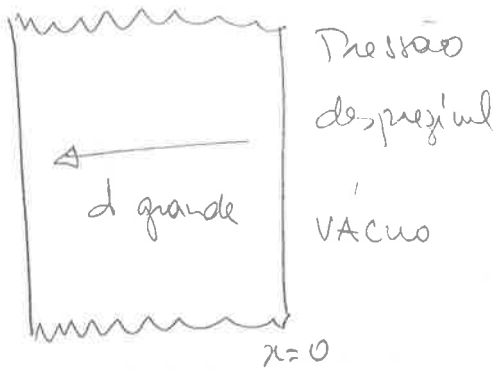 Pressão
desprezível
d grande
VÁCUO
x=0